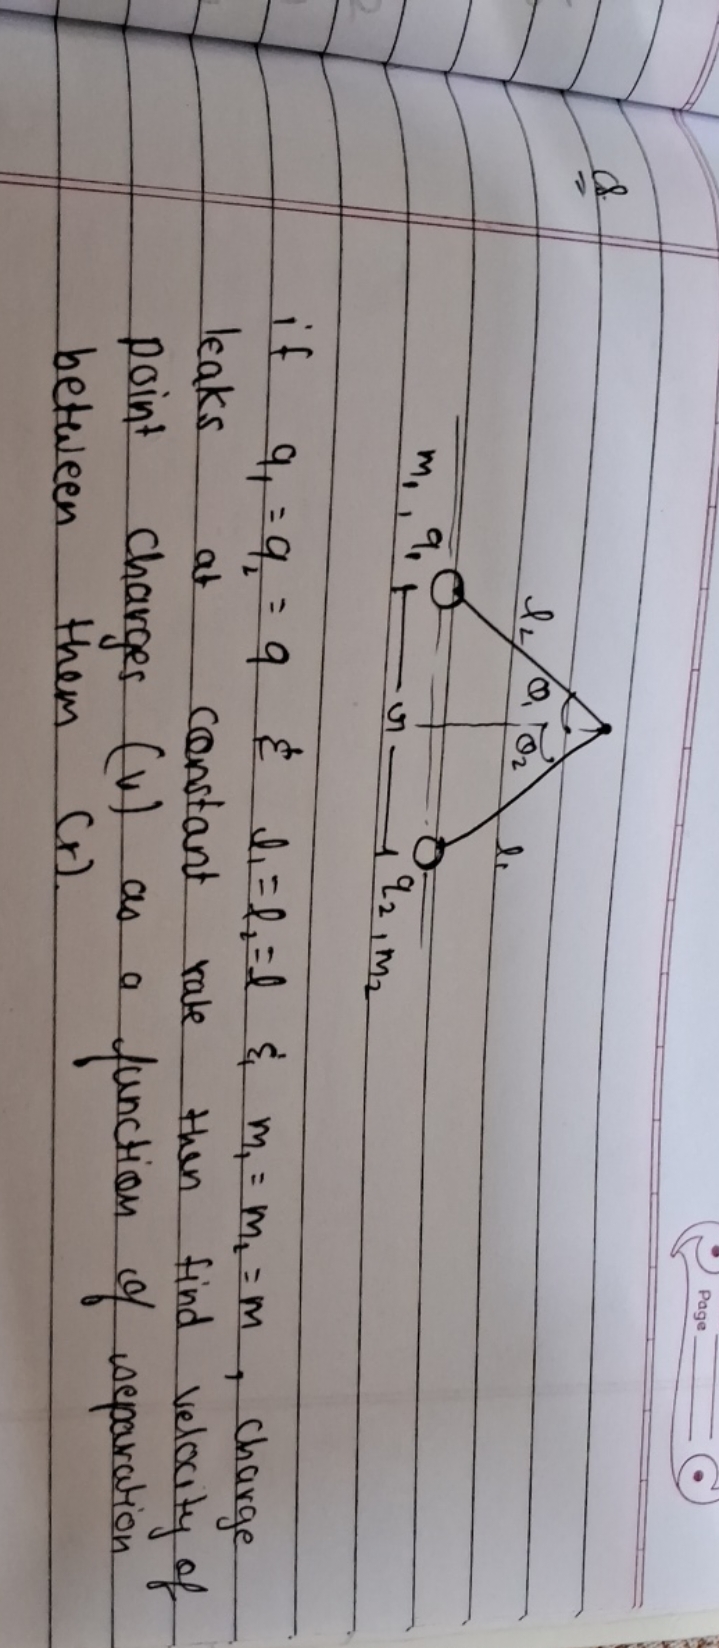 Page
Q.
l₂
θ₁
θ₂
l₁
m₁, q₁
r
q₂, m₂
if q₁ = q₂ = q & l₁ = l₂ = l & m₁ = m₂ = m, charge
leaks at constant rate then find velocity of
point charges (v) as a function of separation
between them (r).